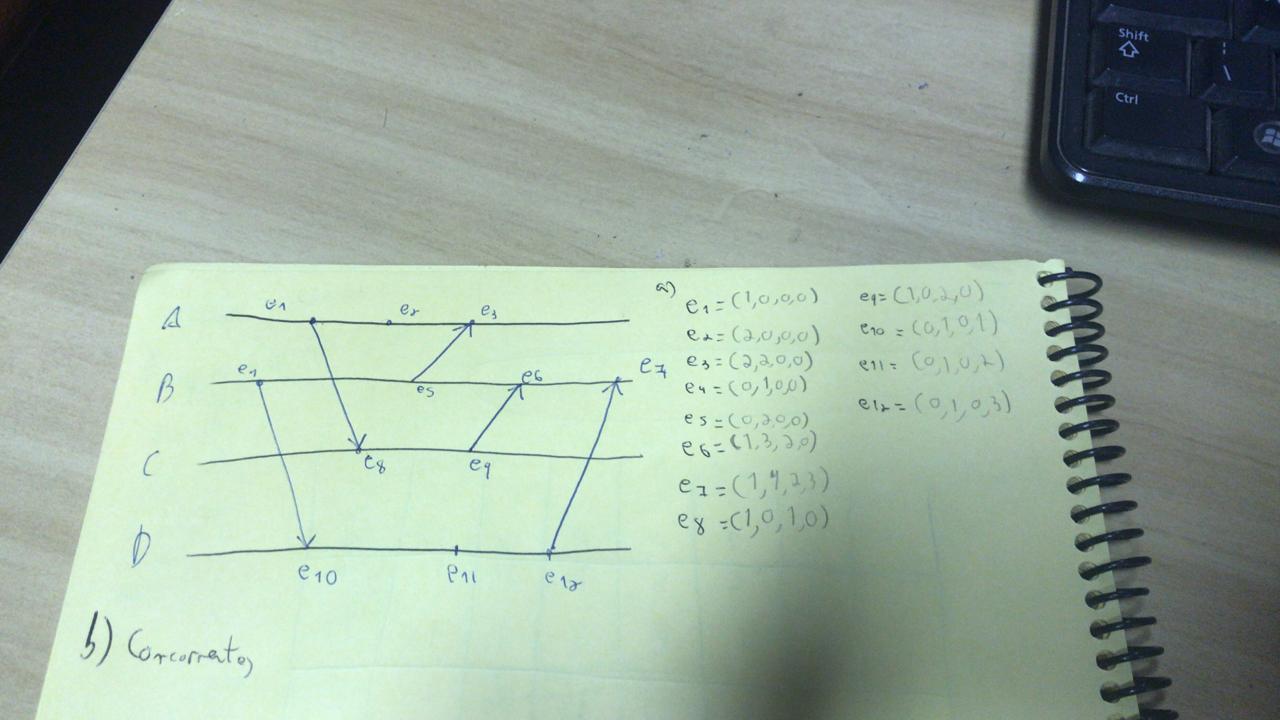 Shift
Ctrl
\
A e1 e2 e3
B e4 e5 e6 e7
C e8 e9
D e10 e11 e12
a) e1=(1,0,0,0)
e2=(2,0,0,0)
e3=(2,2,0,0)
e4=(0,1,0,0)
e5=(0,2,0,0)
e6=(1,3,2,0)
e7=(1,4,2,3)
e8=(1,0,1,0)
e9=(1,0,2,0)
e10=(0,1,0,1)
e11=(0,1,0,2)
e12=(0,1,0,3)
b) Concorrentes